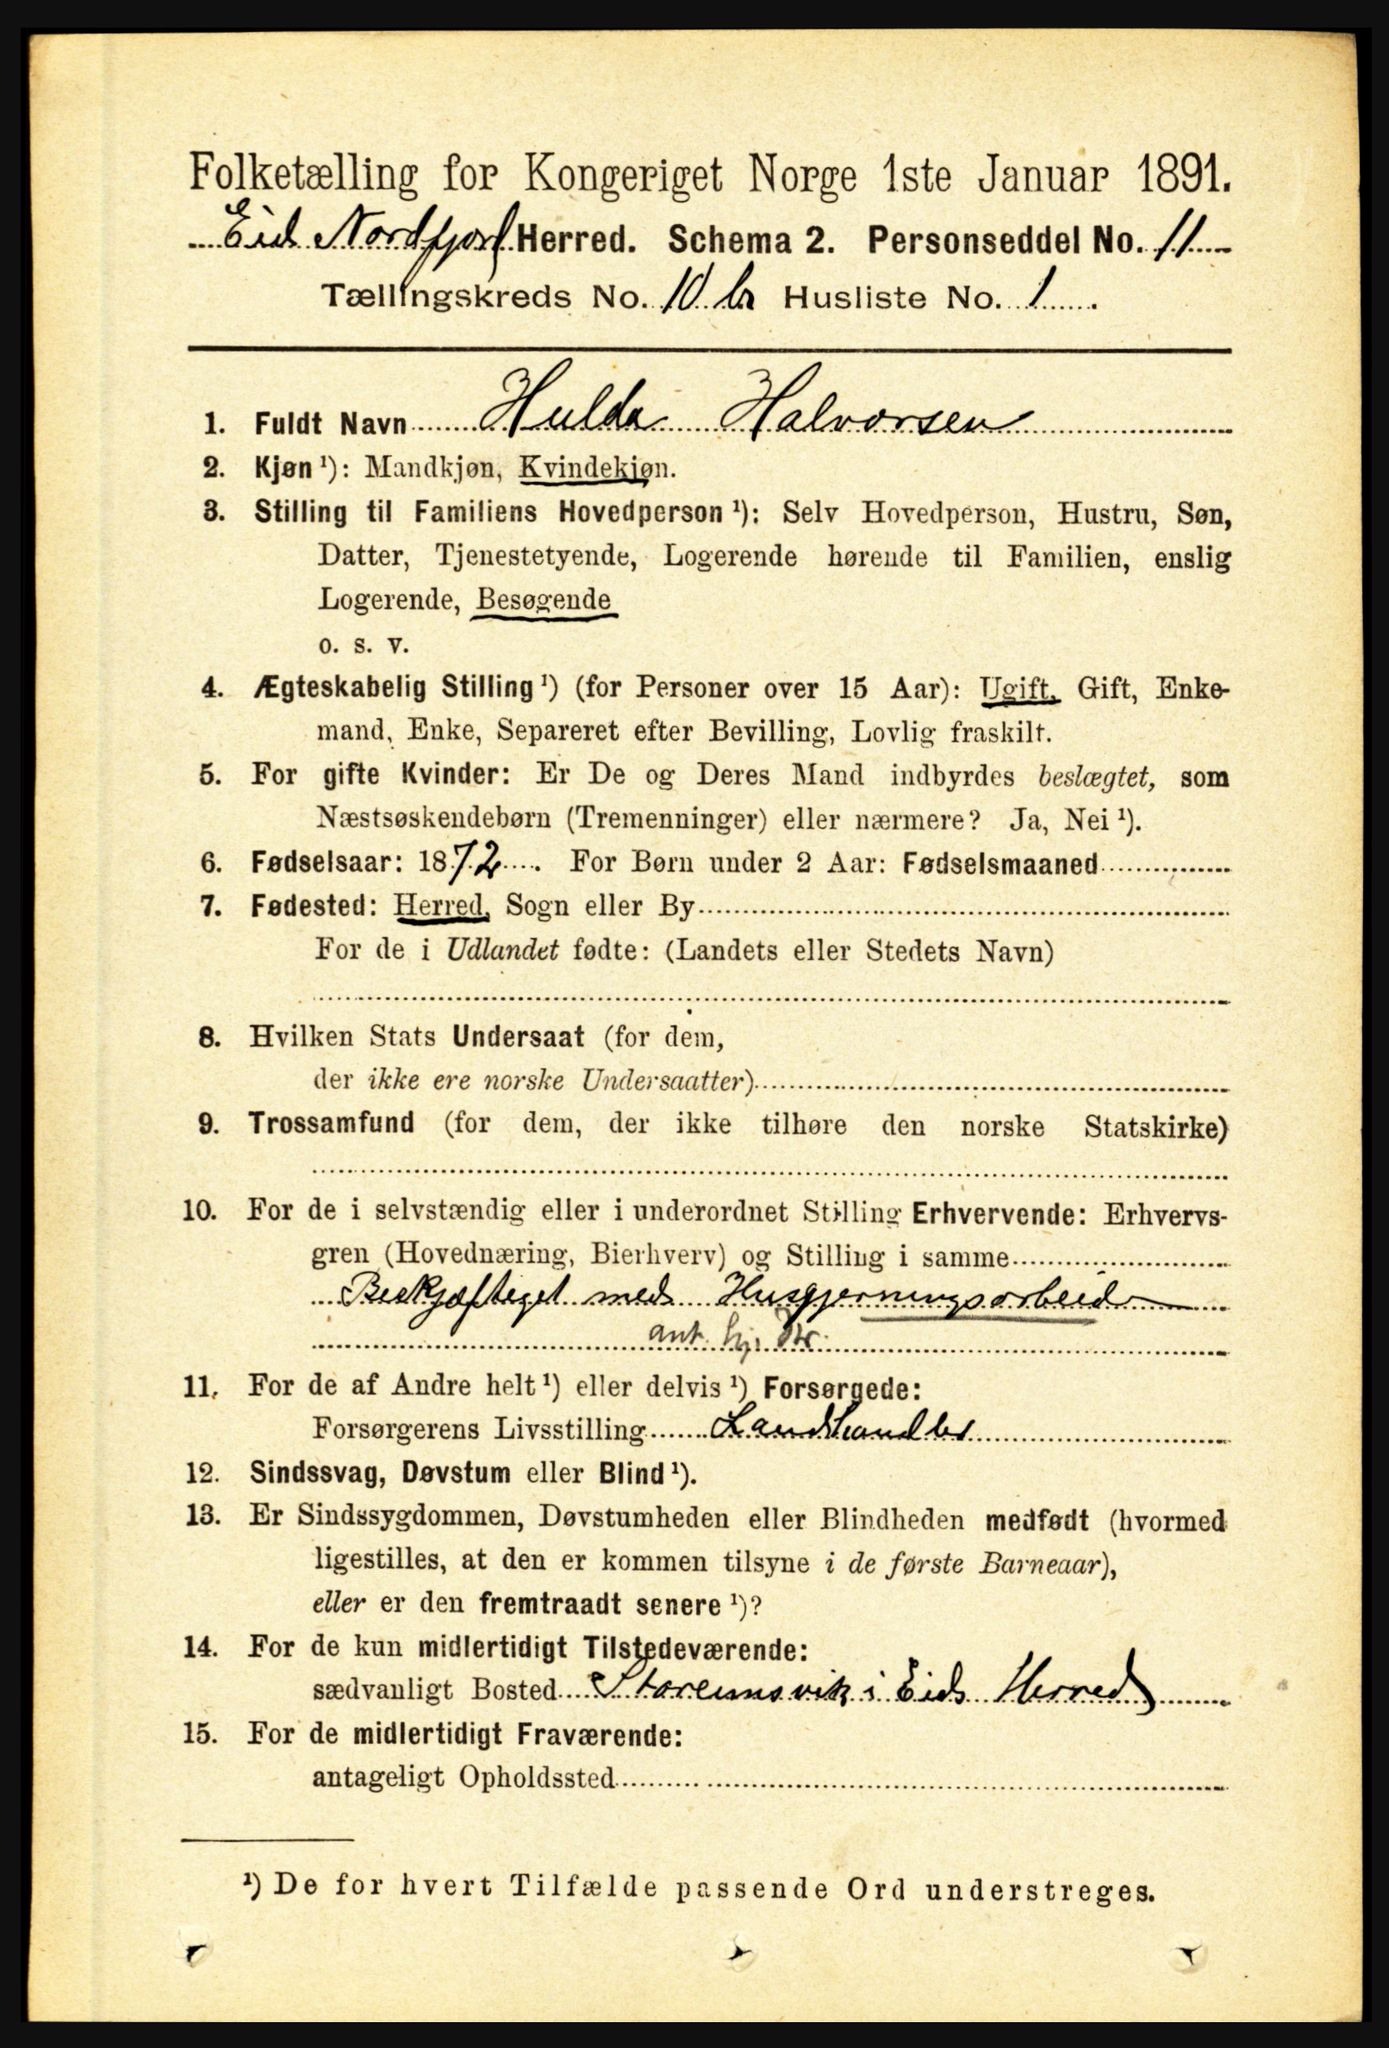 Folketælling for Kongeriget Norge 1ste Januar 1891.
Eid Nordfjord Herred. Schema 2. Personseddel No. 11
Tællingskreds No. 10 b Husliste No. 1.
1. Fuldt Navn Hulda Halvorsen
2. Kjøn ¹): Mandkjøn, Kvindekjøn.
3. Stilling til Familiens Hovedperson ¹): Selv Hovedperson, Hustru, Søn,
Datter, Tjenestetyende, Logerende hørende til Familien, enslig
Logerende, Besøgende
o. s. v.
4. Ægteskabelig Stilling ¹) (for Personer over 15 Aar): Ugift, Gift, Enke-
mand, Enke, Separeret efter Bevilling, Lovlig fraskilt.
5. For gifte Kvinder: Er De og Deres Mand indbyrdes beslægtet, som
Næstsøskendebørn (Tremenninger) eller nærmere? Ja, Nei ¹).
6. Fødselsaar: 1872. For Børn under 2 Aar: Fødselsmaaned
7. Fødested: Herred, Sogn eller By
For de i Udlandet fødte: (Landets eller Stedets Navn)
8. Hvilken Stats Undersaat (for dem,
der ikke ere norske Undersaatter)
9. Trossamfund (for dem, der ikke tilhøre den norske Statskirke)
10. For de i selvstændig eller i underordnet Stilling Erhvervende: Erhvervs-
gren (Hovednæring, Bierhverv) og Stilling i samme
Beskjæftiget med Husgjerningsarbeid
ant. hj. Dtr.
11. For de af Andre helt ¹) eller delvis ¹) Forsørgede:
Forsørgerens Livsstilling Landhandler
12. Sindssvag, Døvstum eller Blind ¹).
13. Er Sindssygdommen, Døvstumheden eller Blindheden medfødt (hvormed
ligestilles, at den er kommen tilsyne i de første Barneaar),
eller er den fremtraadt senere ¹)?
14. For de kun midlertidigt Tilstedeværende:
sædvanligt Bosted Storeimsvik i Eids Herred
15. For de midlertidigt Fraværende:
antageligt Opholdssted
¹) De for hvert Tilfælde passende Ord understreges.